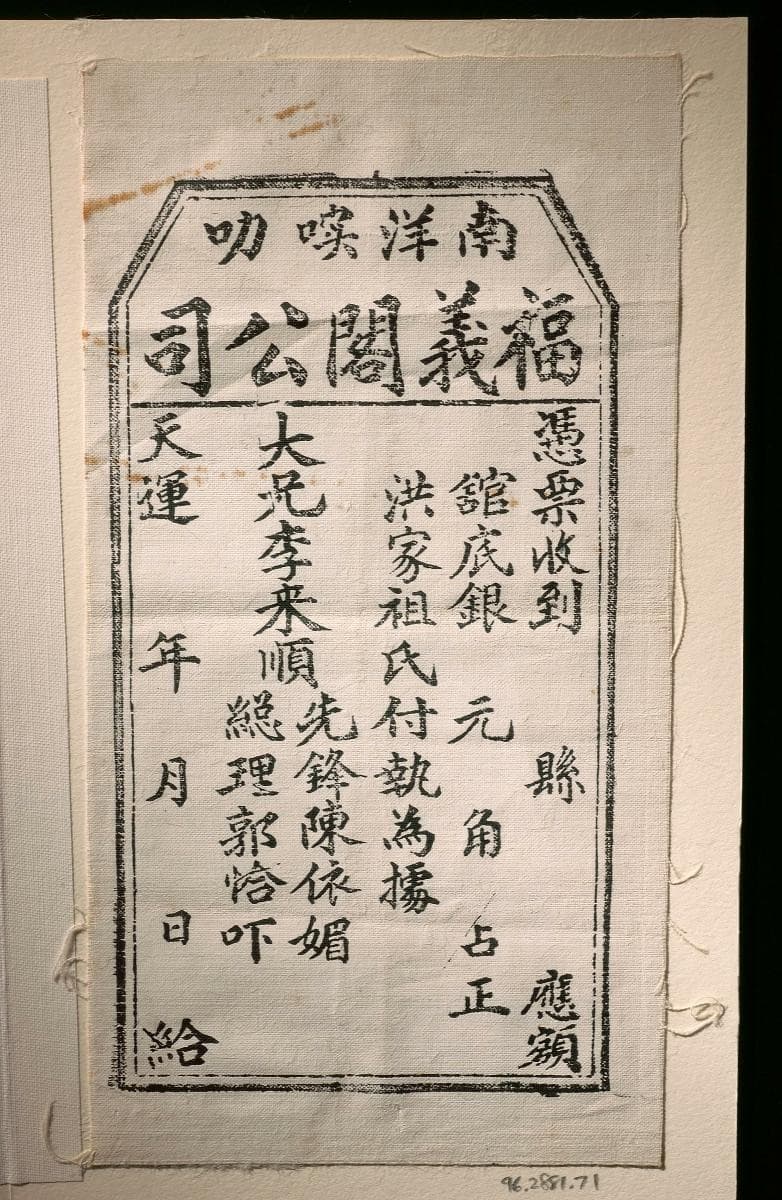 南洋㗝叻
福義閣公司
憑票收到 縣 應額
舘底銀 元 角 占正
洪家祖氏付執為據
大兄李来順
先鋒陳依媚
総理郭恰吓
天運 年 月 日 給
96.2881.71